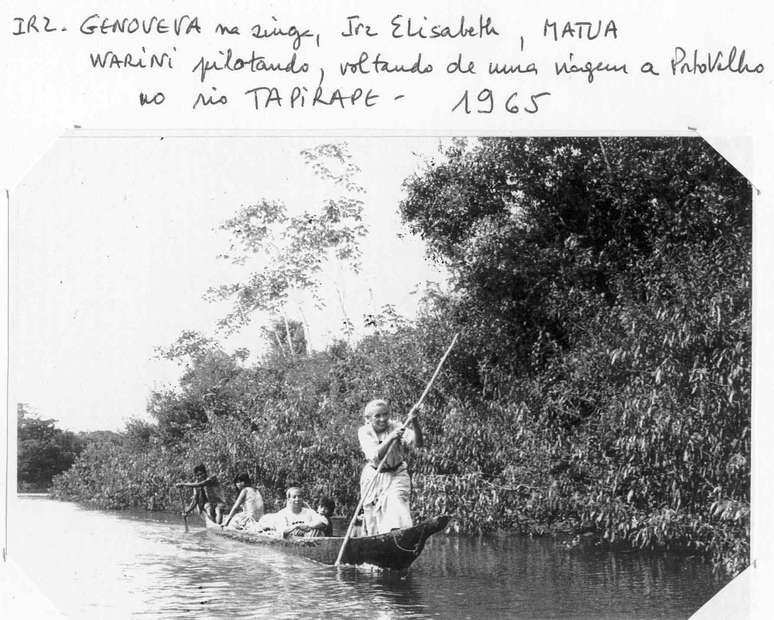 IRZ. GENOVEVA na zinga, Irz Elisabeth, MATUA
WARiNi pilotando, voltando de uma viagem a PortoVelho
no rio TAPiRAPE - 1965